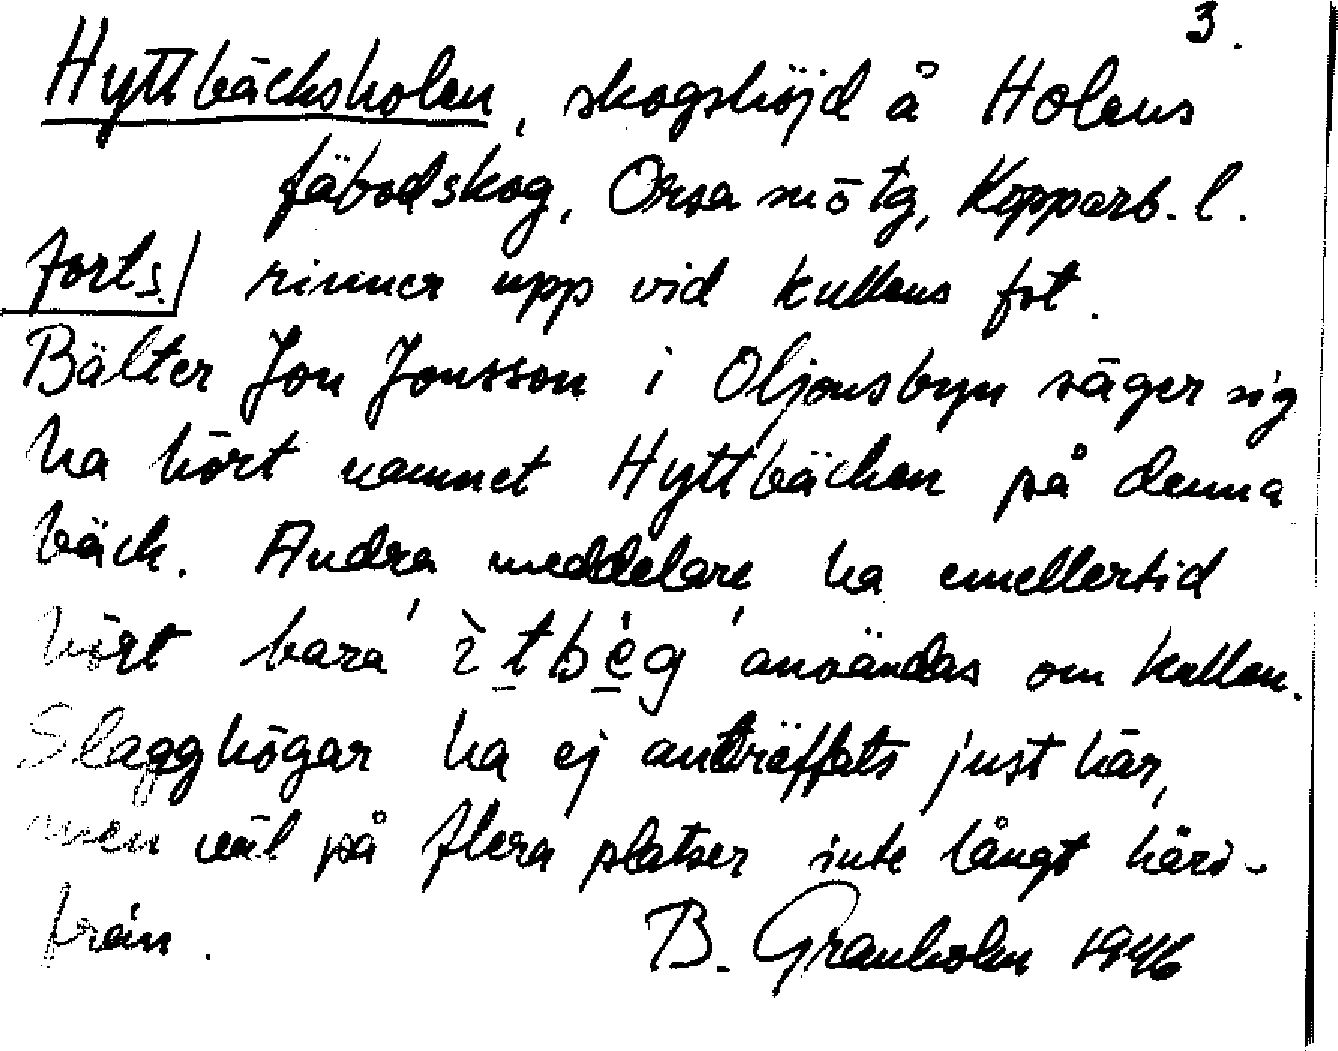 3.
Hyttbäckskolen, skogshöjd å Holens
fäbodskog, Orsa sn ö tg, Kopparb. l.
forts. rinner upp vid kullens fot.
Bälter Jon Jonsson i Oljonsbyn säger sig
ha hört namnet Hyttbäcken på denna
bäck. Andra meddelare ha emellertid
hört bara 'ìtbég' användas om kullen.
Slagghögar ha ej anträffats just här,
men väl på flera platser inte långt häri-
från.
B. Granholm 1946